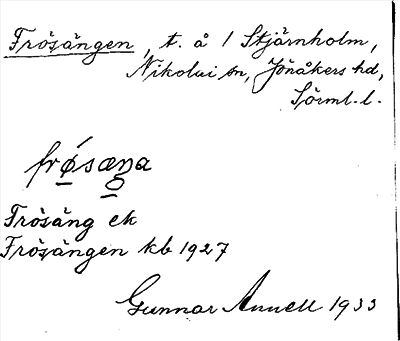 Frösängen, t. å 1 Stjärnholm,
Nikolai sn, Jönåkers hd,
Sörml. l.
frǿsæŋa
Frösäng ek
Frösängen kb 1927
Gunnar Annell 1933